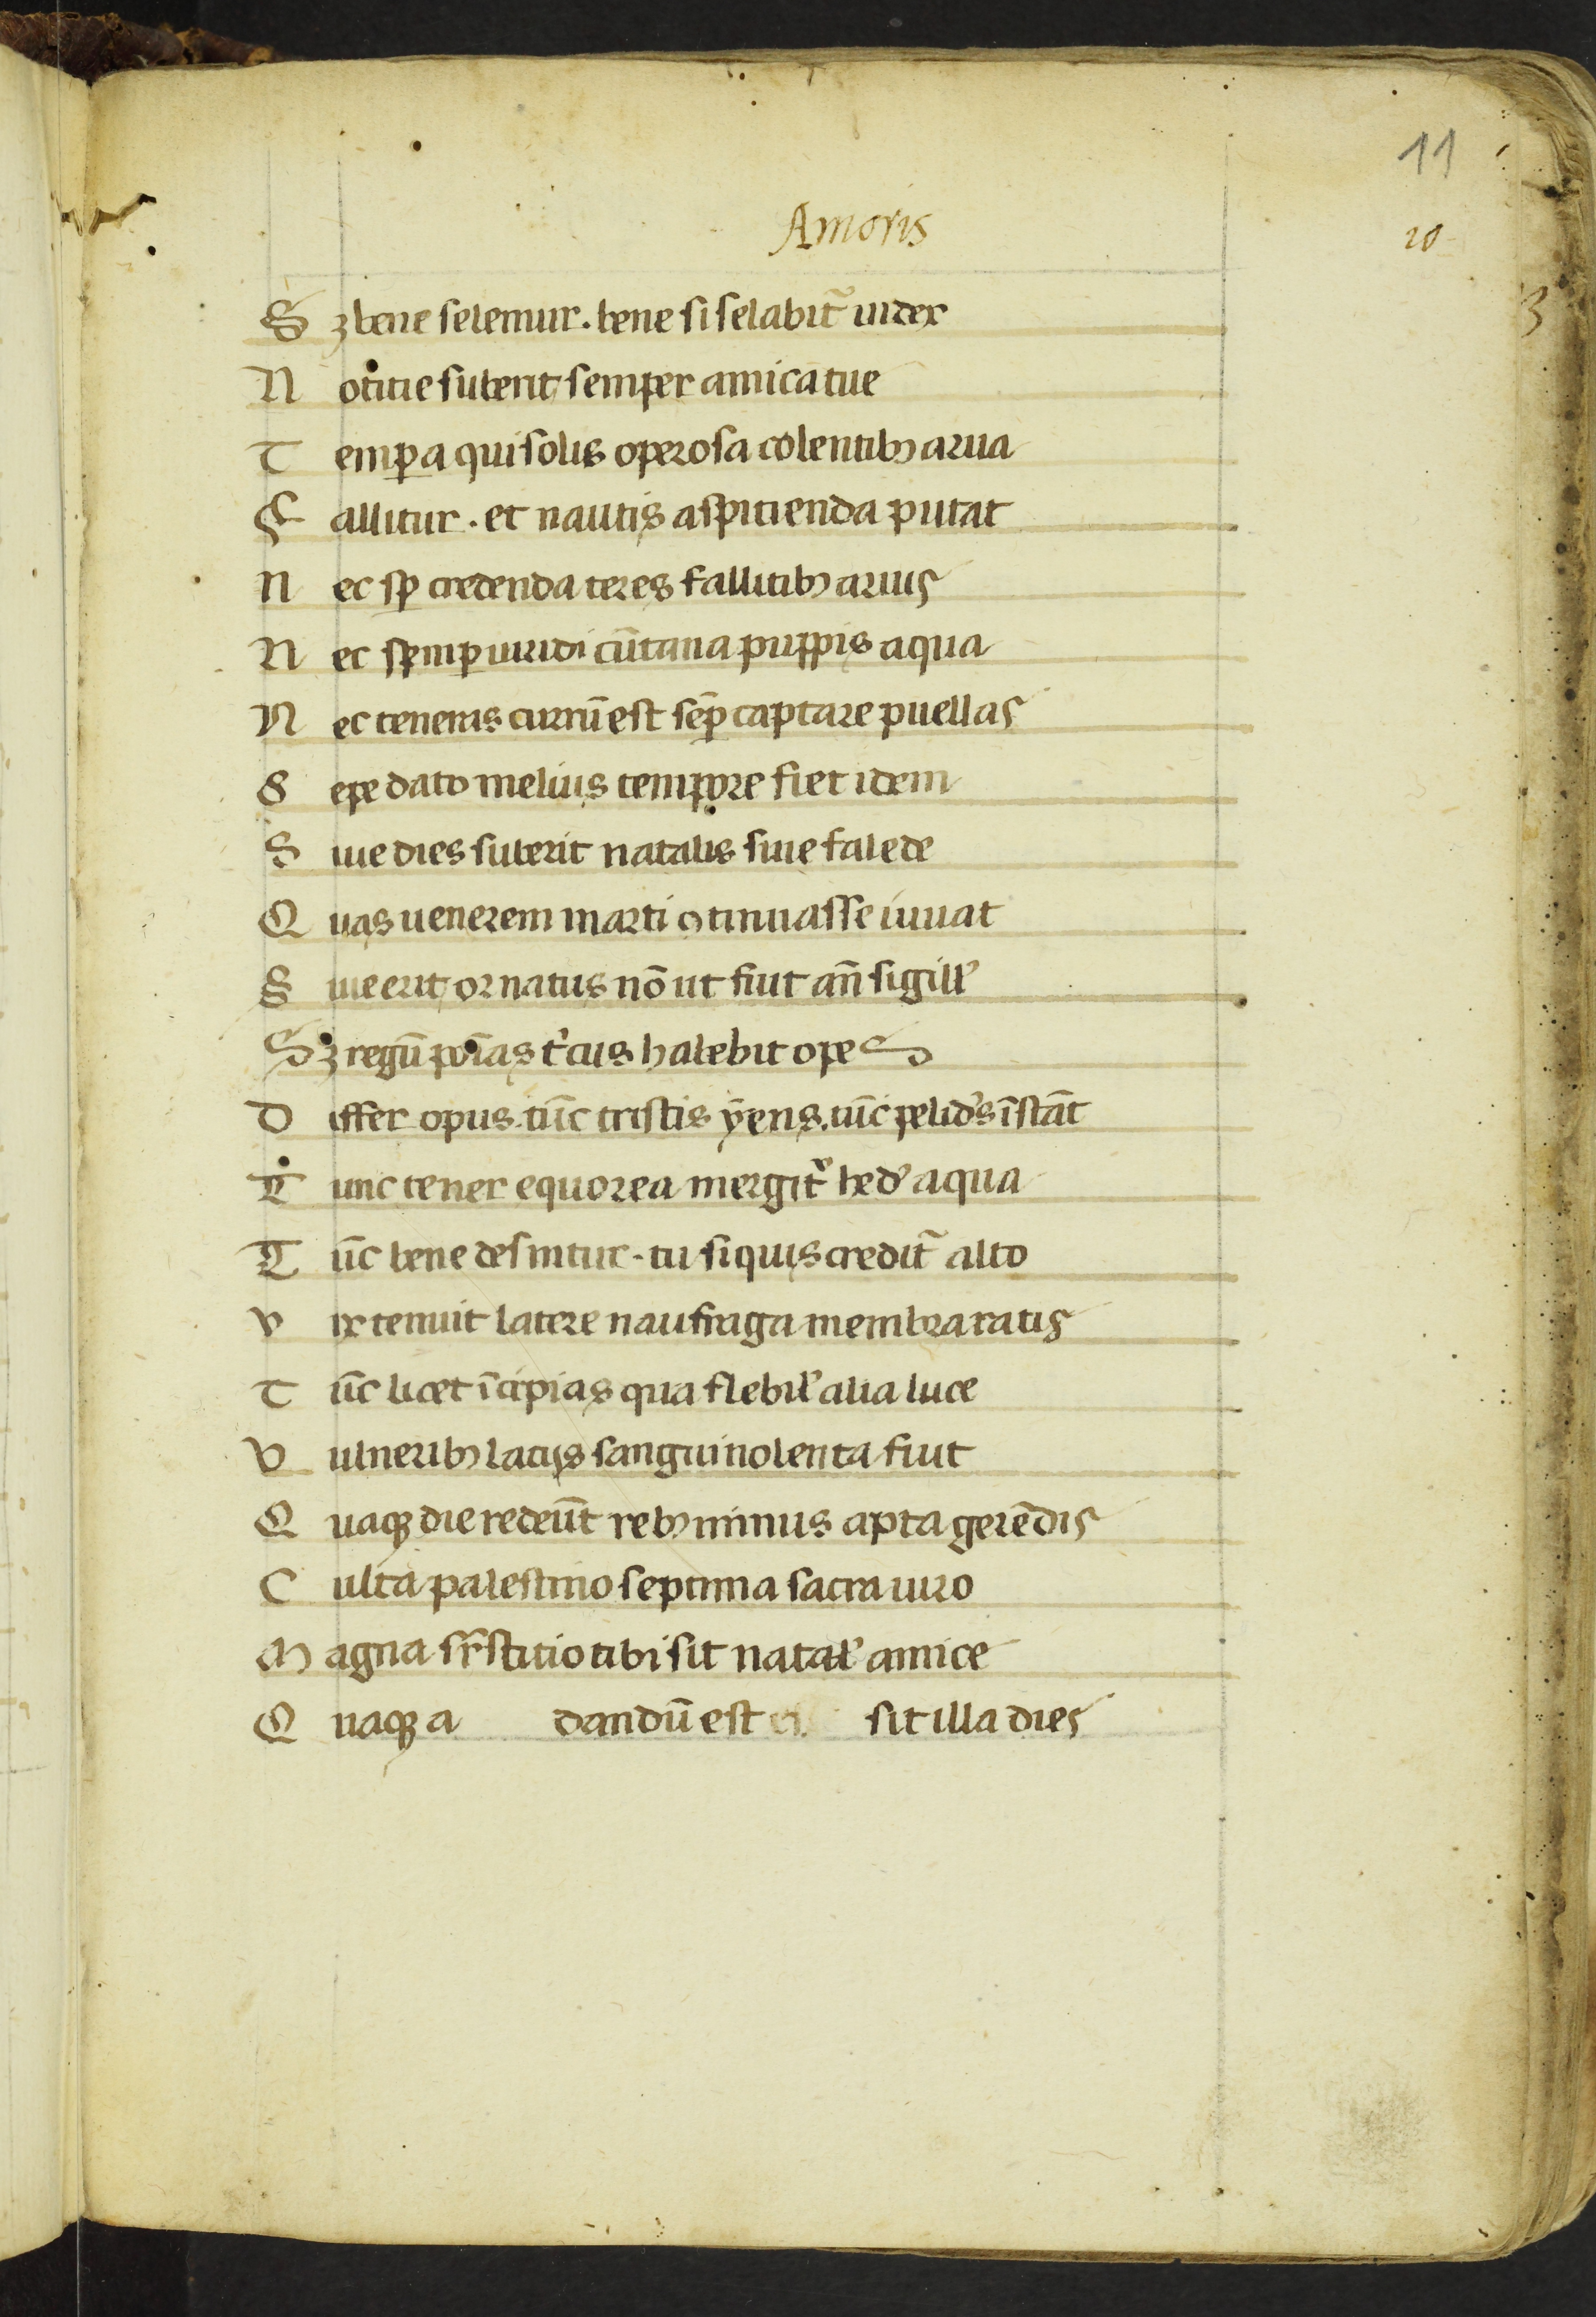 11
Amoris
10
Sꝫ bene selemur. bene si selabit᷑ iudex
Notitie suberit semper amica tue
Temꝑa qui solis operosa colentibꝫ arua
Fallitur. et nautis aspitienda putat
Nec sꝑ credenda ceres fallitibꝫ aruis
Nec semꝑ uiridi cūtana puppis aqua
Nec teneras currū est sēꝑ captare puellas
Sepe dato melius tempore fiet idem
Siue dies suberit natalis siue kalede
Quas uenerem marti ꝯtinuasse iuuat
Siue erit ornatus nō ut fiut añ sigill'
Sꝫ regū poīas t'cus habebit opes
Differ opus. tūc tristis ẏens. tūc pelid's īstāt
Tunc tener equorea mergit᷑ hed' aqua
Tūc bene desinitur. tu si quis credit᷑ alto
Vix tenuit latere naufraga membra ratis
Tūc licet īcipias qua flebil' alia luce
Vulneribꝫ latijs sanguinolenta fiut
Quaqꝫ die redeūt rebꝫ minus apta gerēdis
Culta palestino septima sacra uiro
Magna sr̄stitio tibi sit natal' amice
Quaqꝫ a dandū est sit illa dies